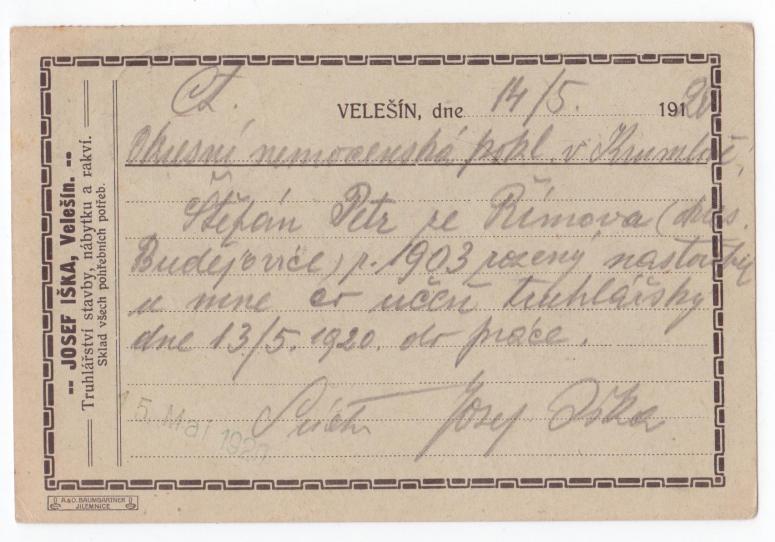 -- JOSEF IŠKA, Velešín. --
Truhlářství stavby, nábytku a rakví.
Sklad všech pohřebních potřeb.
Ct.
VELEŠÍN, dne 14/5. 1920
Okresní nemocenská pokl. v Krumlově,
Štěpán Petr ze Římova (okres.
Budějovice) r. 1903 rozený nastoupil
u mne co učeň truhlářský
dne 13/5. 1920. do práce.
Josef Iška
15. Mai 1920
A&O. BAUMGARTNER
JILEMNICE